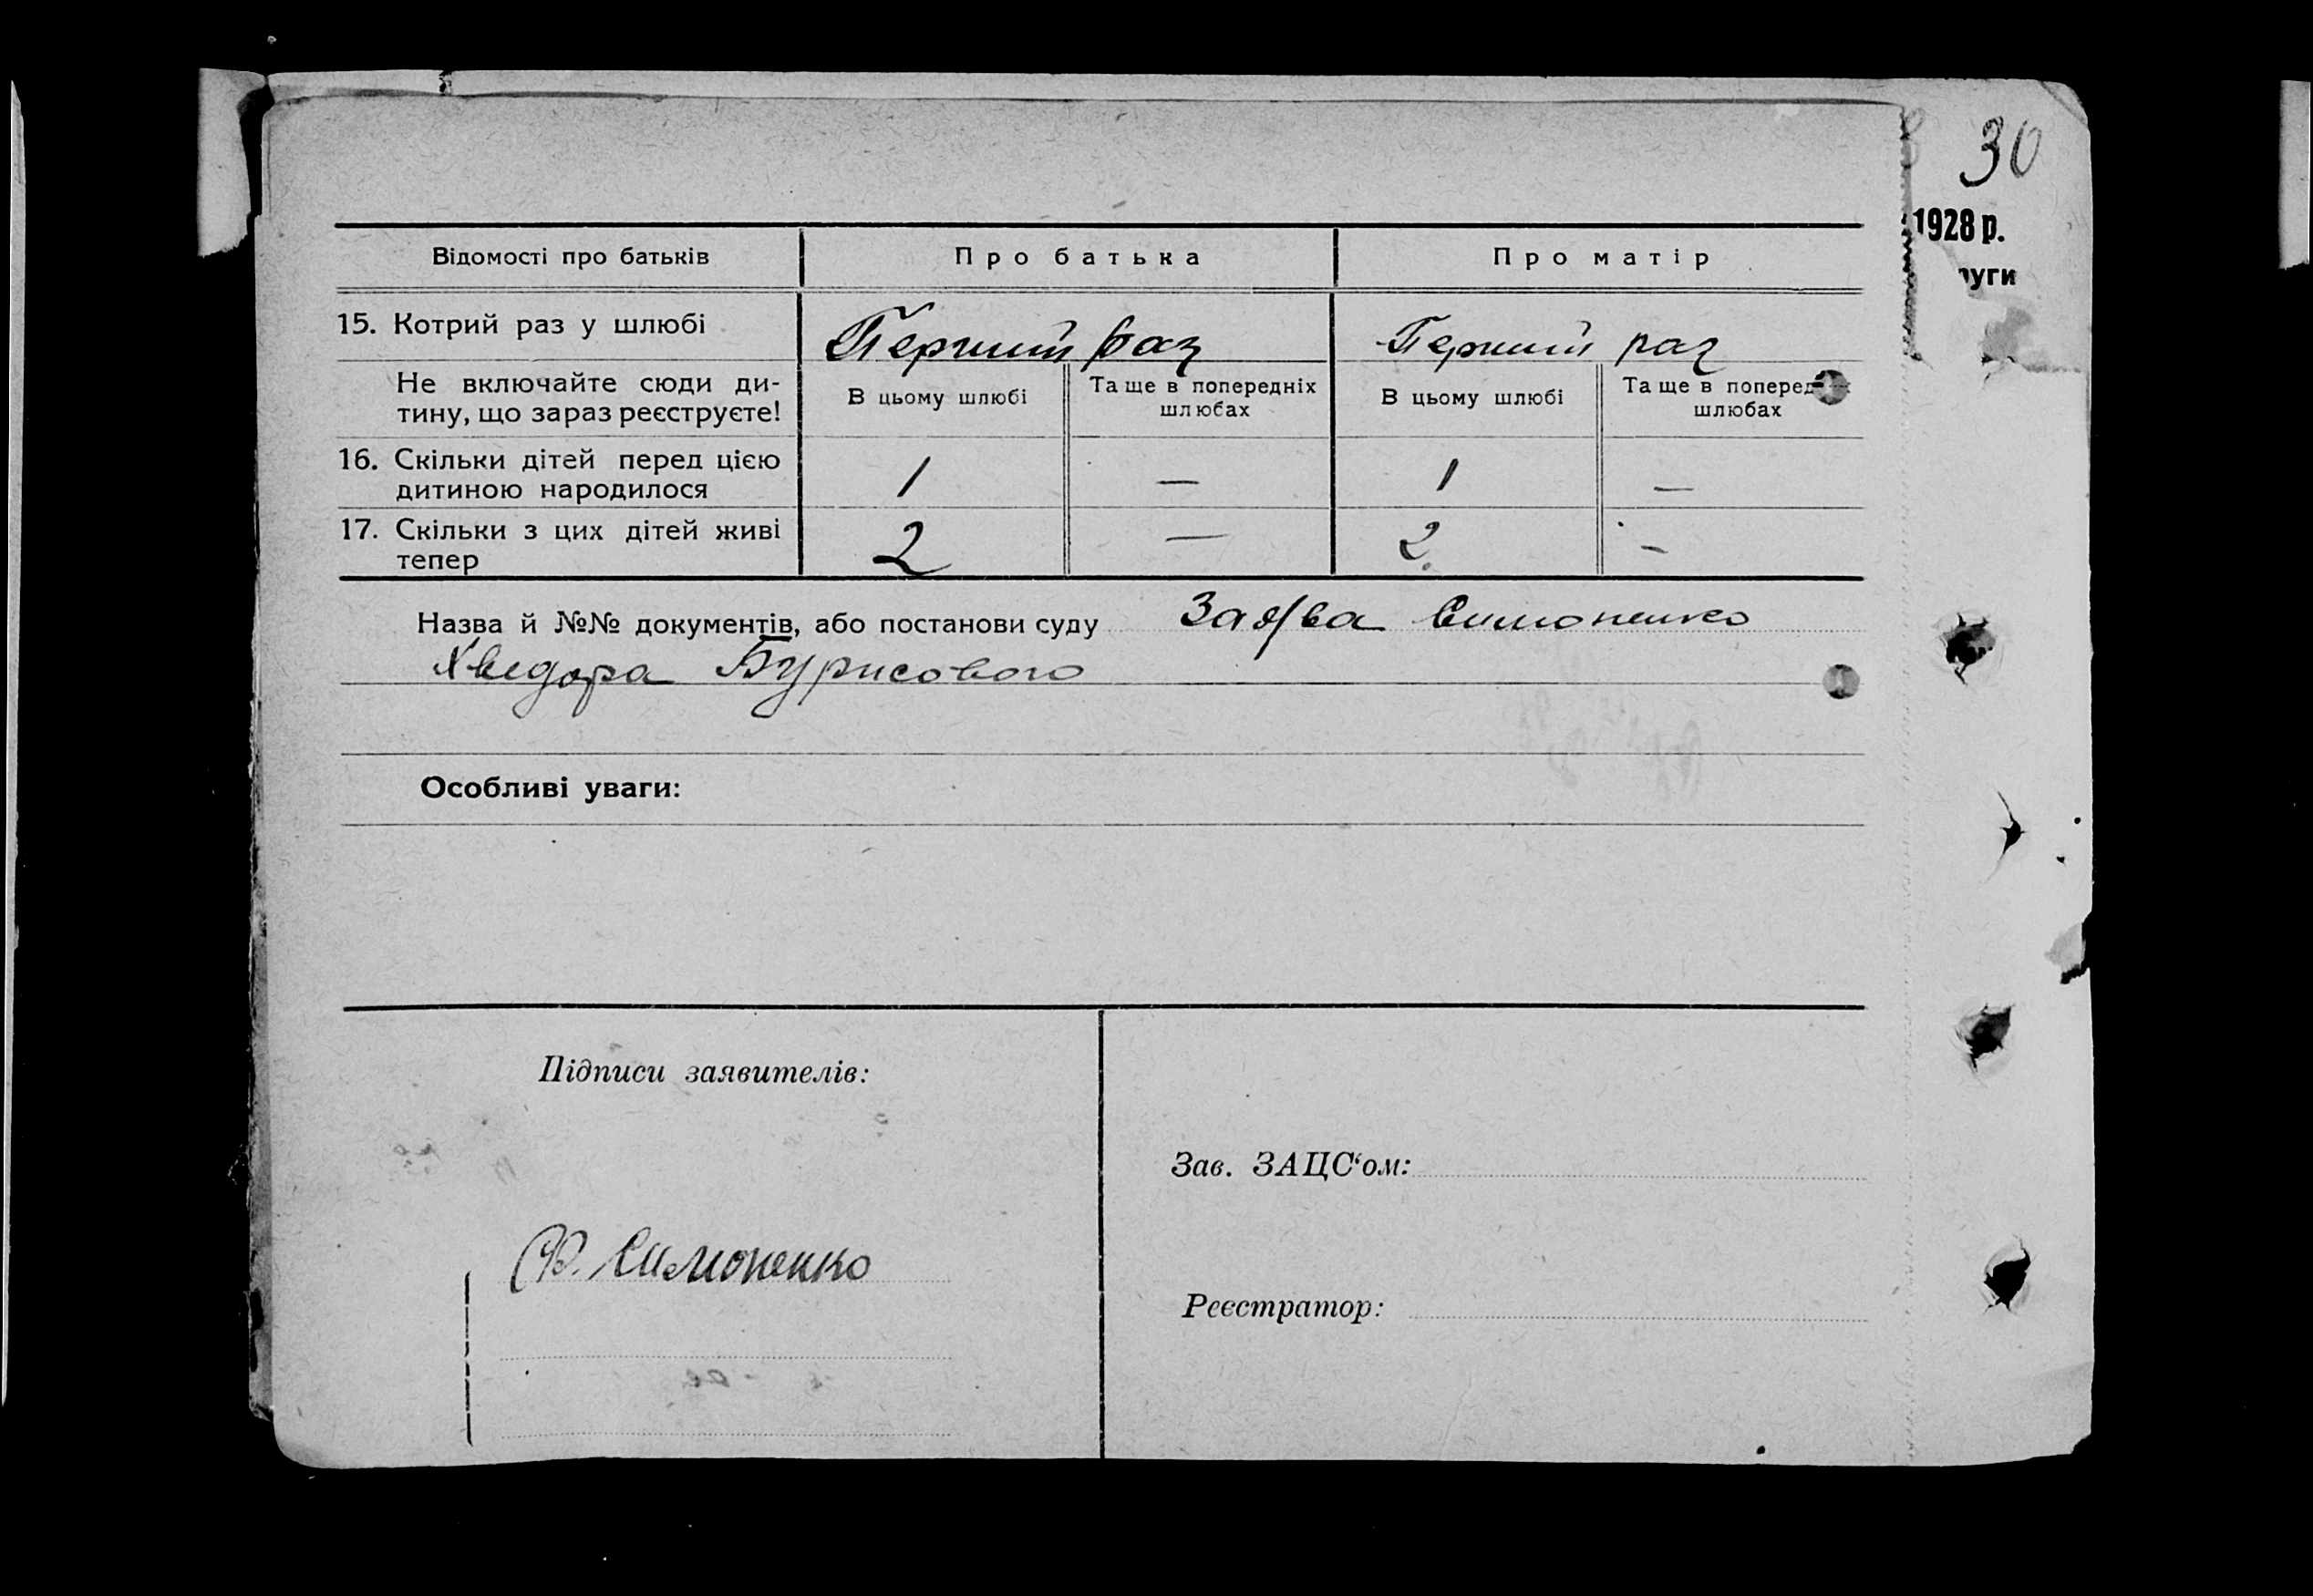 30
1928 р.
руги
Відомості про батьків
Про батька
Про матір
15. Котрий раз у шлюбі
Перший раз
Перший раз
Не включайте сюди ди-
тину, що зараз реєструєте!
В цьому шлюбі
Та ще в попередніх
шлюбах
В цьому шлюбі
Та ще в поперед
шлюбах
16. Скільки дітей перед цією
дитиною народилося
1
—
1
—
17. Скільки з цих дітей живі
тепер
2
—
2.
-
Назва й №№ документів, або постанови суду Заява Симоненко
Хведора Бурисового
Особливі уваги:
Підписи заявителів:
Зав. ЗАЦС‘ом:
Ф. Симоненко
Реєстратор: